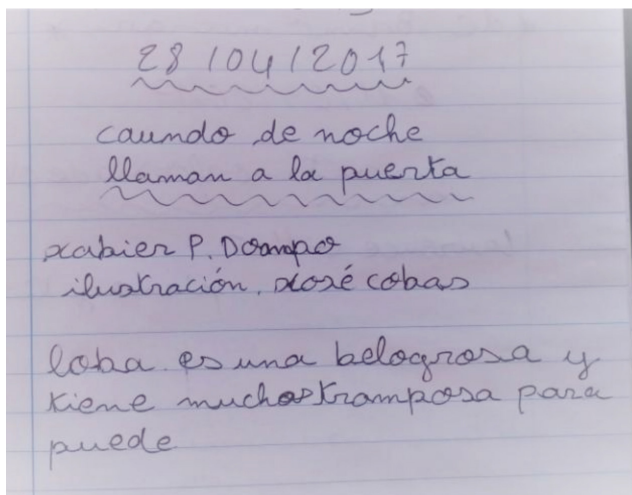 28/04/2017
caundo de noche
llaman a la puerta
xabier P. Doampo
ilustración. xosé cobas
loba es una belogrosa y
tiene muchostramposa para
puede